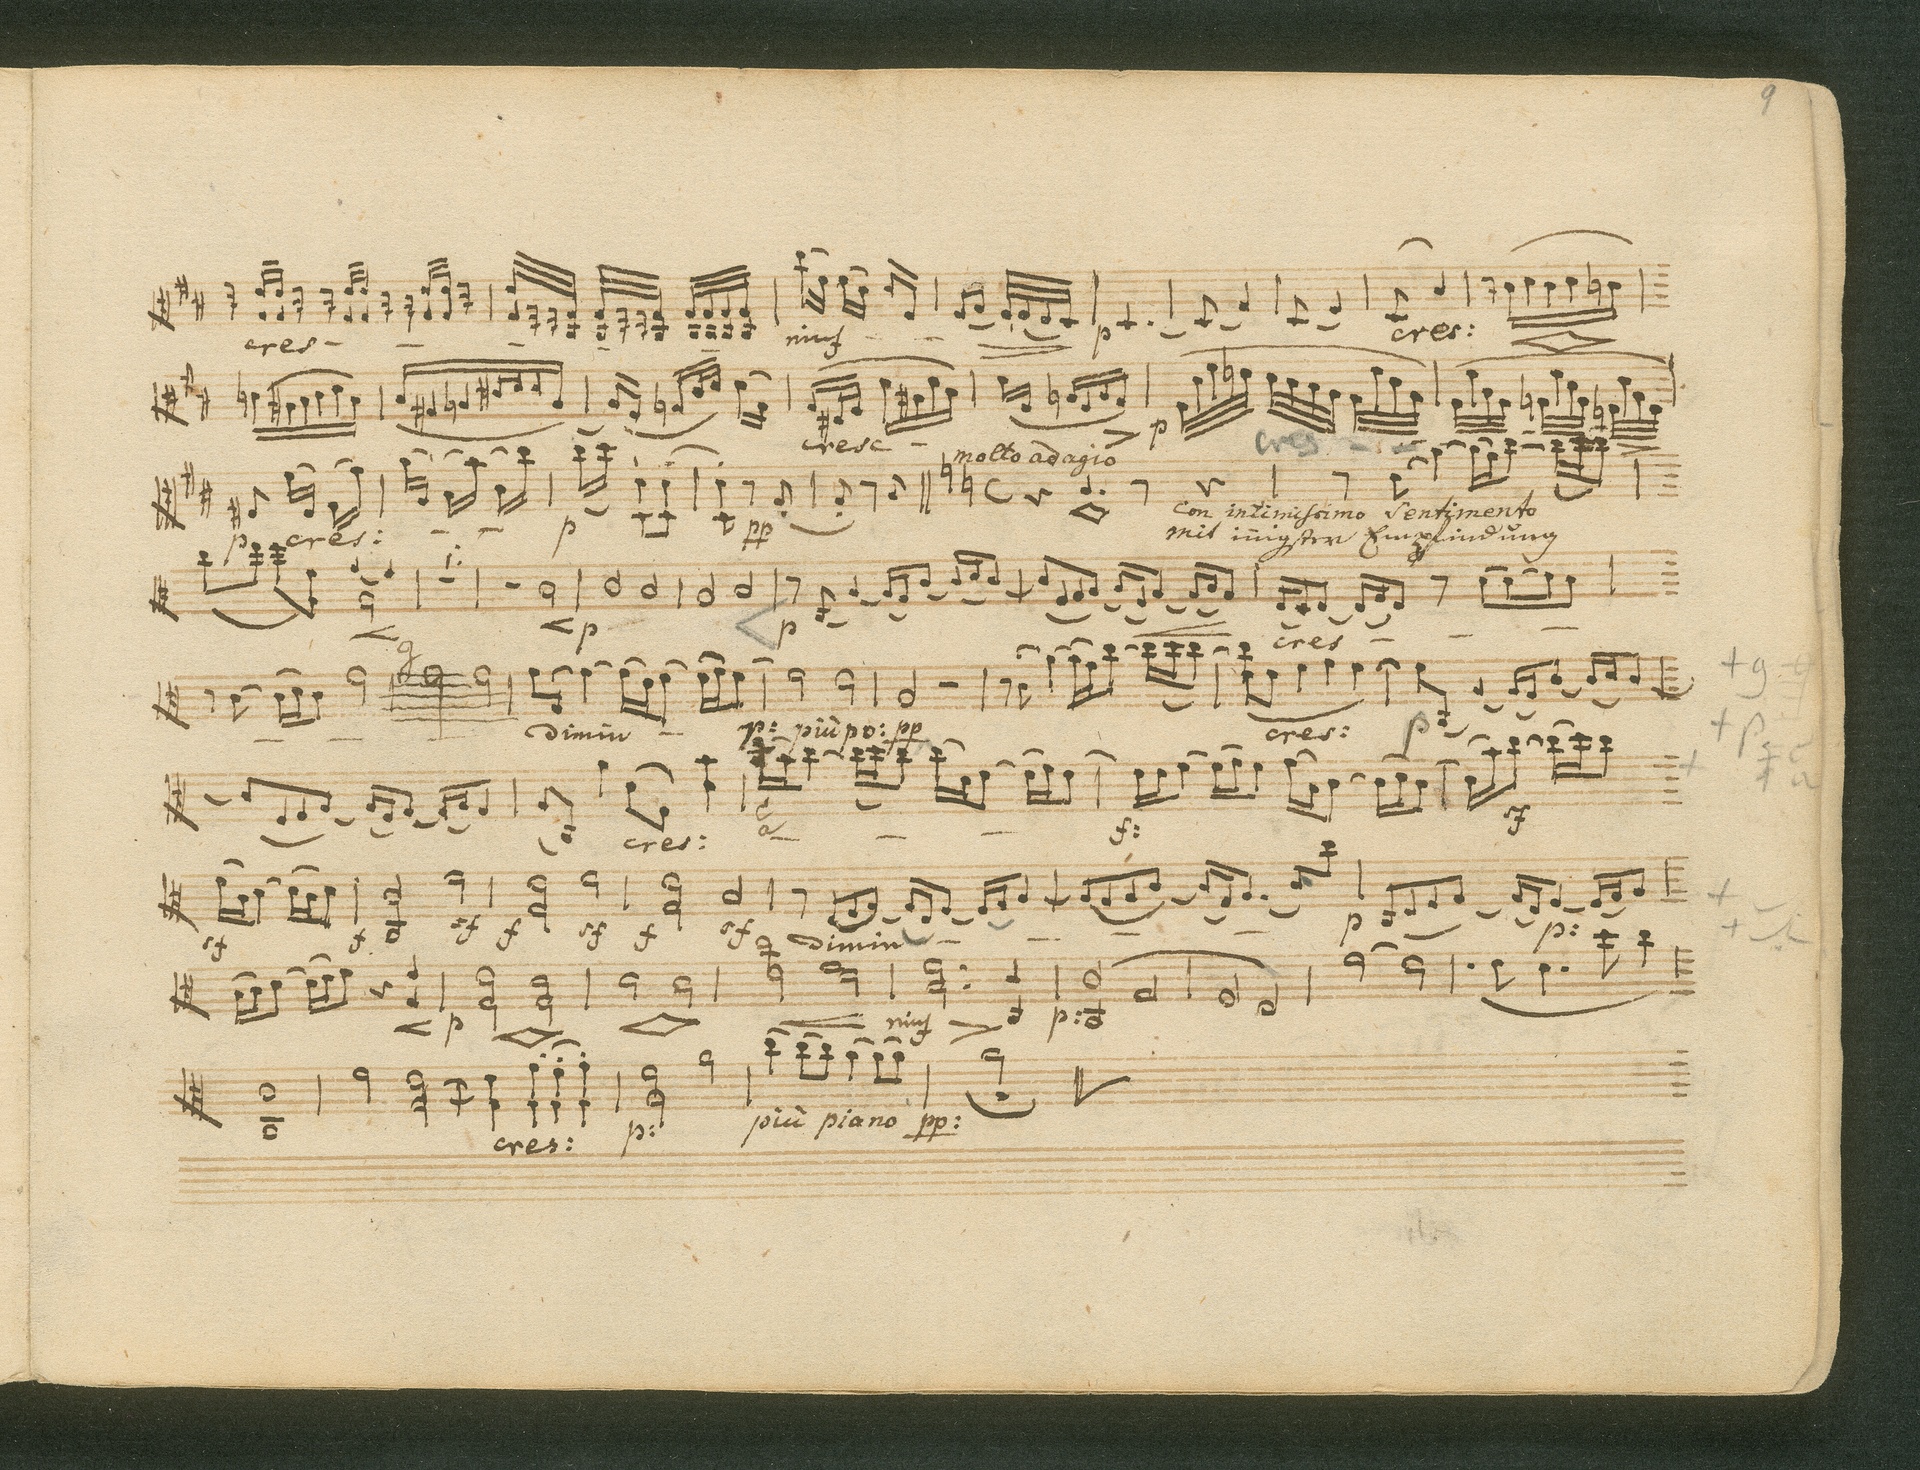 9
cres -
p
cres:
cresc -
p
cres
molto adagio
p cres: p pp
con intimissimo Sentimento
mit iñigster Empfindung
p p
cres
g
dimin p: più po: pp cres: p
+ g
+ p
cres: f: sf
sf f sf f sf f sf dimin p p:
p p:
cres: p: più piano pp: